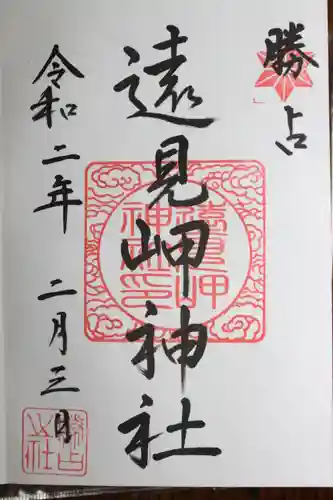 勝占
遠見岬神社
令和二年 二月三日
遠見岬
神社印
勝占
之社